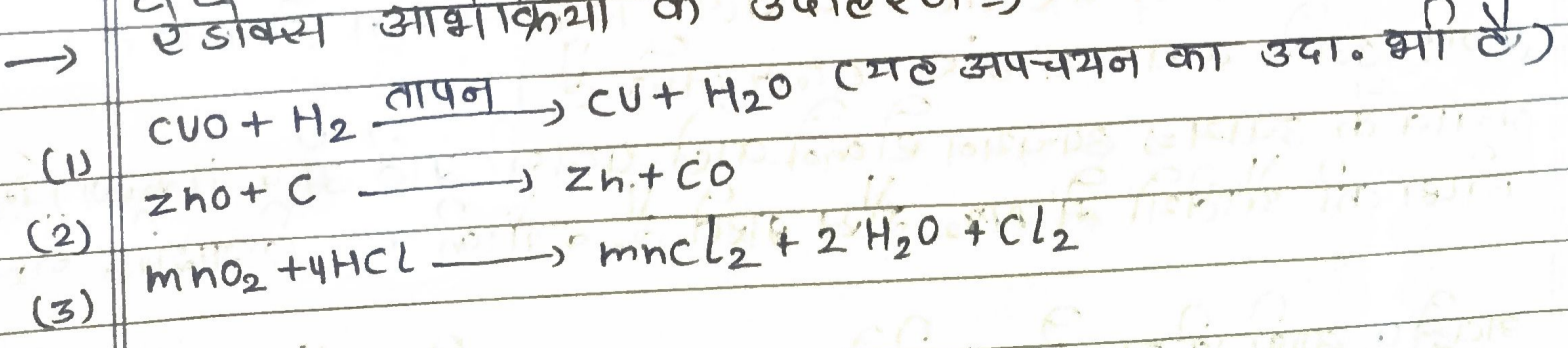 → रेडोक्स अभिक्रिया के उदाहरण→
(1) CUO + H2 तापन→ CU + H2O (यह अपचयन का उदा. भी है)
(2) ZnO + C → Zn + CO
(3) mnO2 + 4HCl → mnCl2 + 2H2O + Cl2